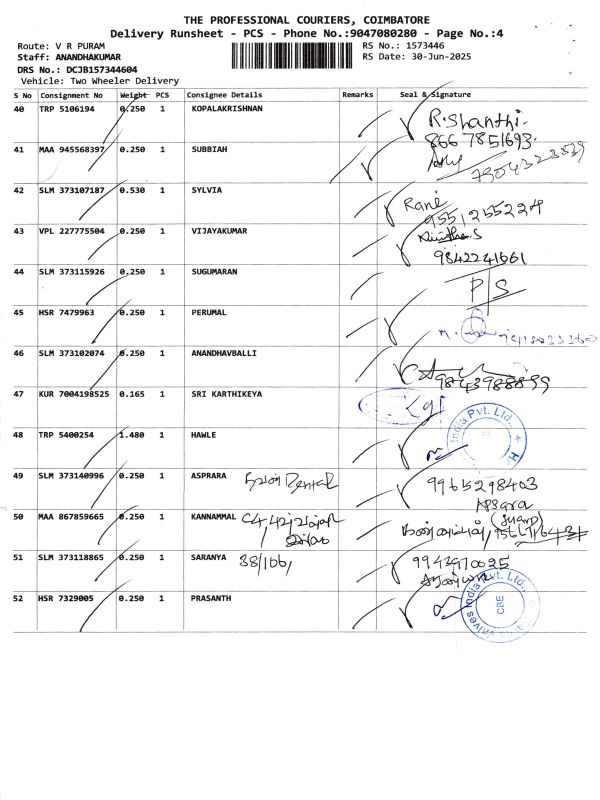 THE PROFESSIONAL COURIERS, COIMBATORE
Delivery Runsheet - PCS - Phone No.:9047080280 - Page No.:4
Route: V R PURAM
RS No.: 1573446
Staff: ANANDHAKUMAR
RS Date: 30-Jun-2025
DRS No.: DCJB157344604
Vehicle: Two Wheeler Delivery
S No Consignment No Weight PCS Consignee Details Remarks Seal & Signature
40 TRP 5106194 0.250 1 KOPALAKRISHNAN R. Shanthi.
8667851693.
41 MAA 945568397 0.250 1 SUBBIAH
42 SLM 373107187 0.530 1 SYLVIA Rani
9551255224
43 VPL 227775504 0.250 1 VIJAYAKUMAR
9842241661
44 SLM 373115926 0.250 1 SUGUMARAN P/S
45 HSR 7479963 0.250 1 PERUMAL
46 SLM 373102074 0.250 1 ANANDHAVBALLI
9843988899
47 KUR 7004198525 0.165 1 SRI KARTHIKEYA
48 TRP 5400254 1.480 1 HAWLE India Pvt. Ltd.,
49 SLM 373140996 0.250 1 ASPRARA Dental 9965298403
Apsara
50 MAA 867859665 0.250 1 KANNAMMAL
51 SLM 373118865 0.250 1 SARANYA 38/166, 9943970025
52 HSR 7329005 0.250 1 PRASANTH Valves India Pvt. Ltd., CBE